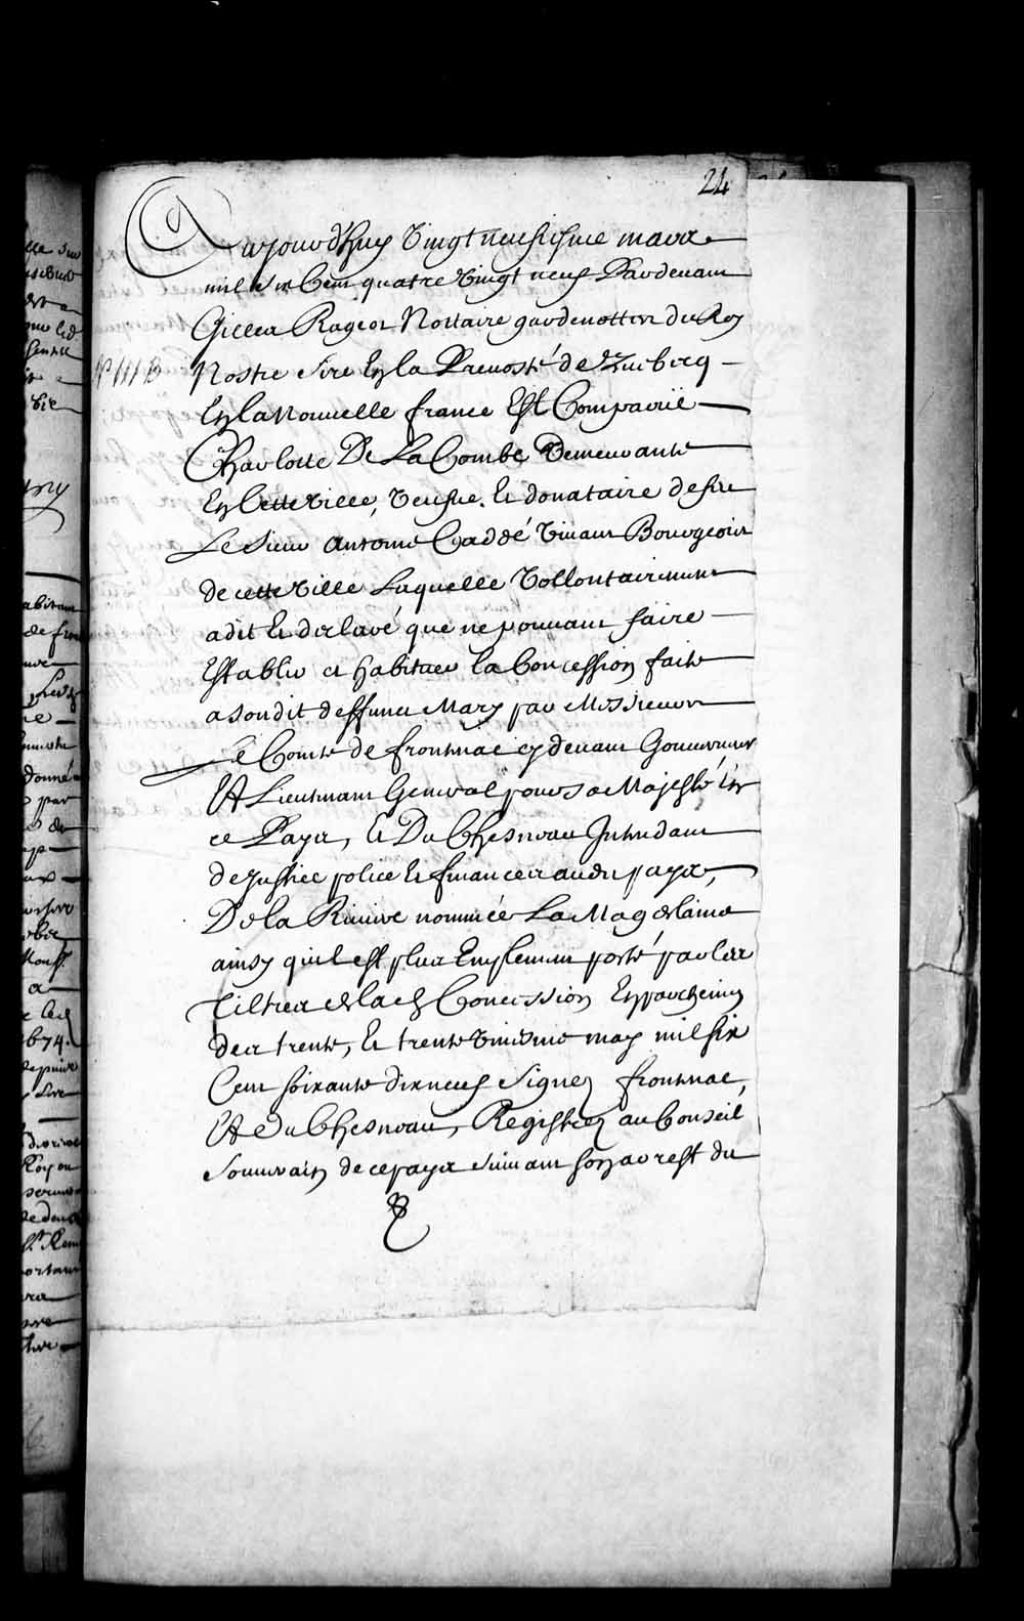 24
Aujourd'huy vingt neufiesme mars
mil six Cens quatre vingt neuf Pardevant
Gilles Rageot Nottaire gardenottes du Roy
Nostre Sire En la Prevosté de Quebecq
En la Nouvelle france Est Comparüe
Charlotte De La Combe Demeurante
En Cette ville, veufve. Et donataire de feu
Le Sieur Antoine Caddé vivant Bourgeois
de cette ville Laquelle vollontairement
a dit Et declaré que ne pouvant faire
Establir et habituer la Concession faite
a son dit deffunct Mary par Messieurs
Le Comte de frontenac cy devant Gouverneur
Et Lieutenant General pour sa Majesté En
ce Pays, Et Du Chesneau Intendant
de justice police Et finances audit pays,
De la Riviere nommée La Magdelaine
ainsy quil est plus Emplement porté par les
Tiltres de lad Concession En parchemin
des trente, Et trente uniesme may mil six
Cens soixante dix neuf Signez frontenac,
Et du Chesneau, Registrez au Conseil
Souverain de ce pays suivant son arrest du